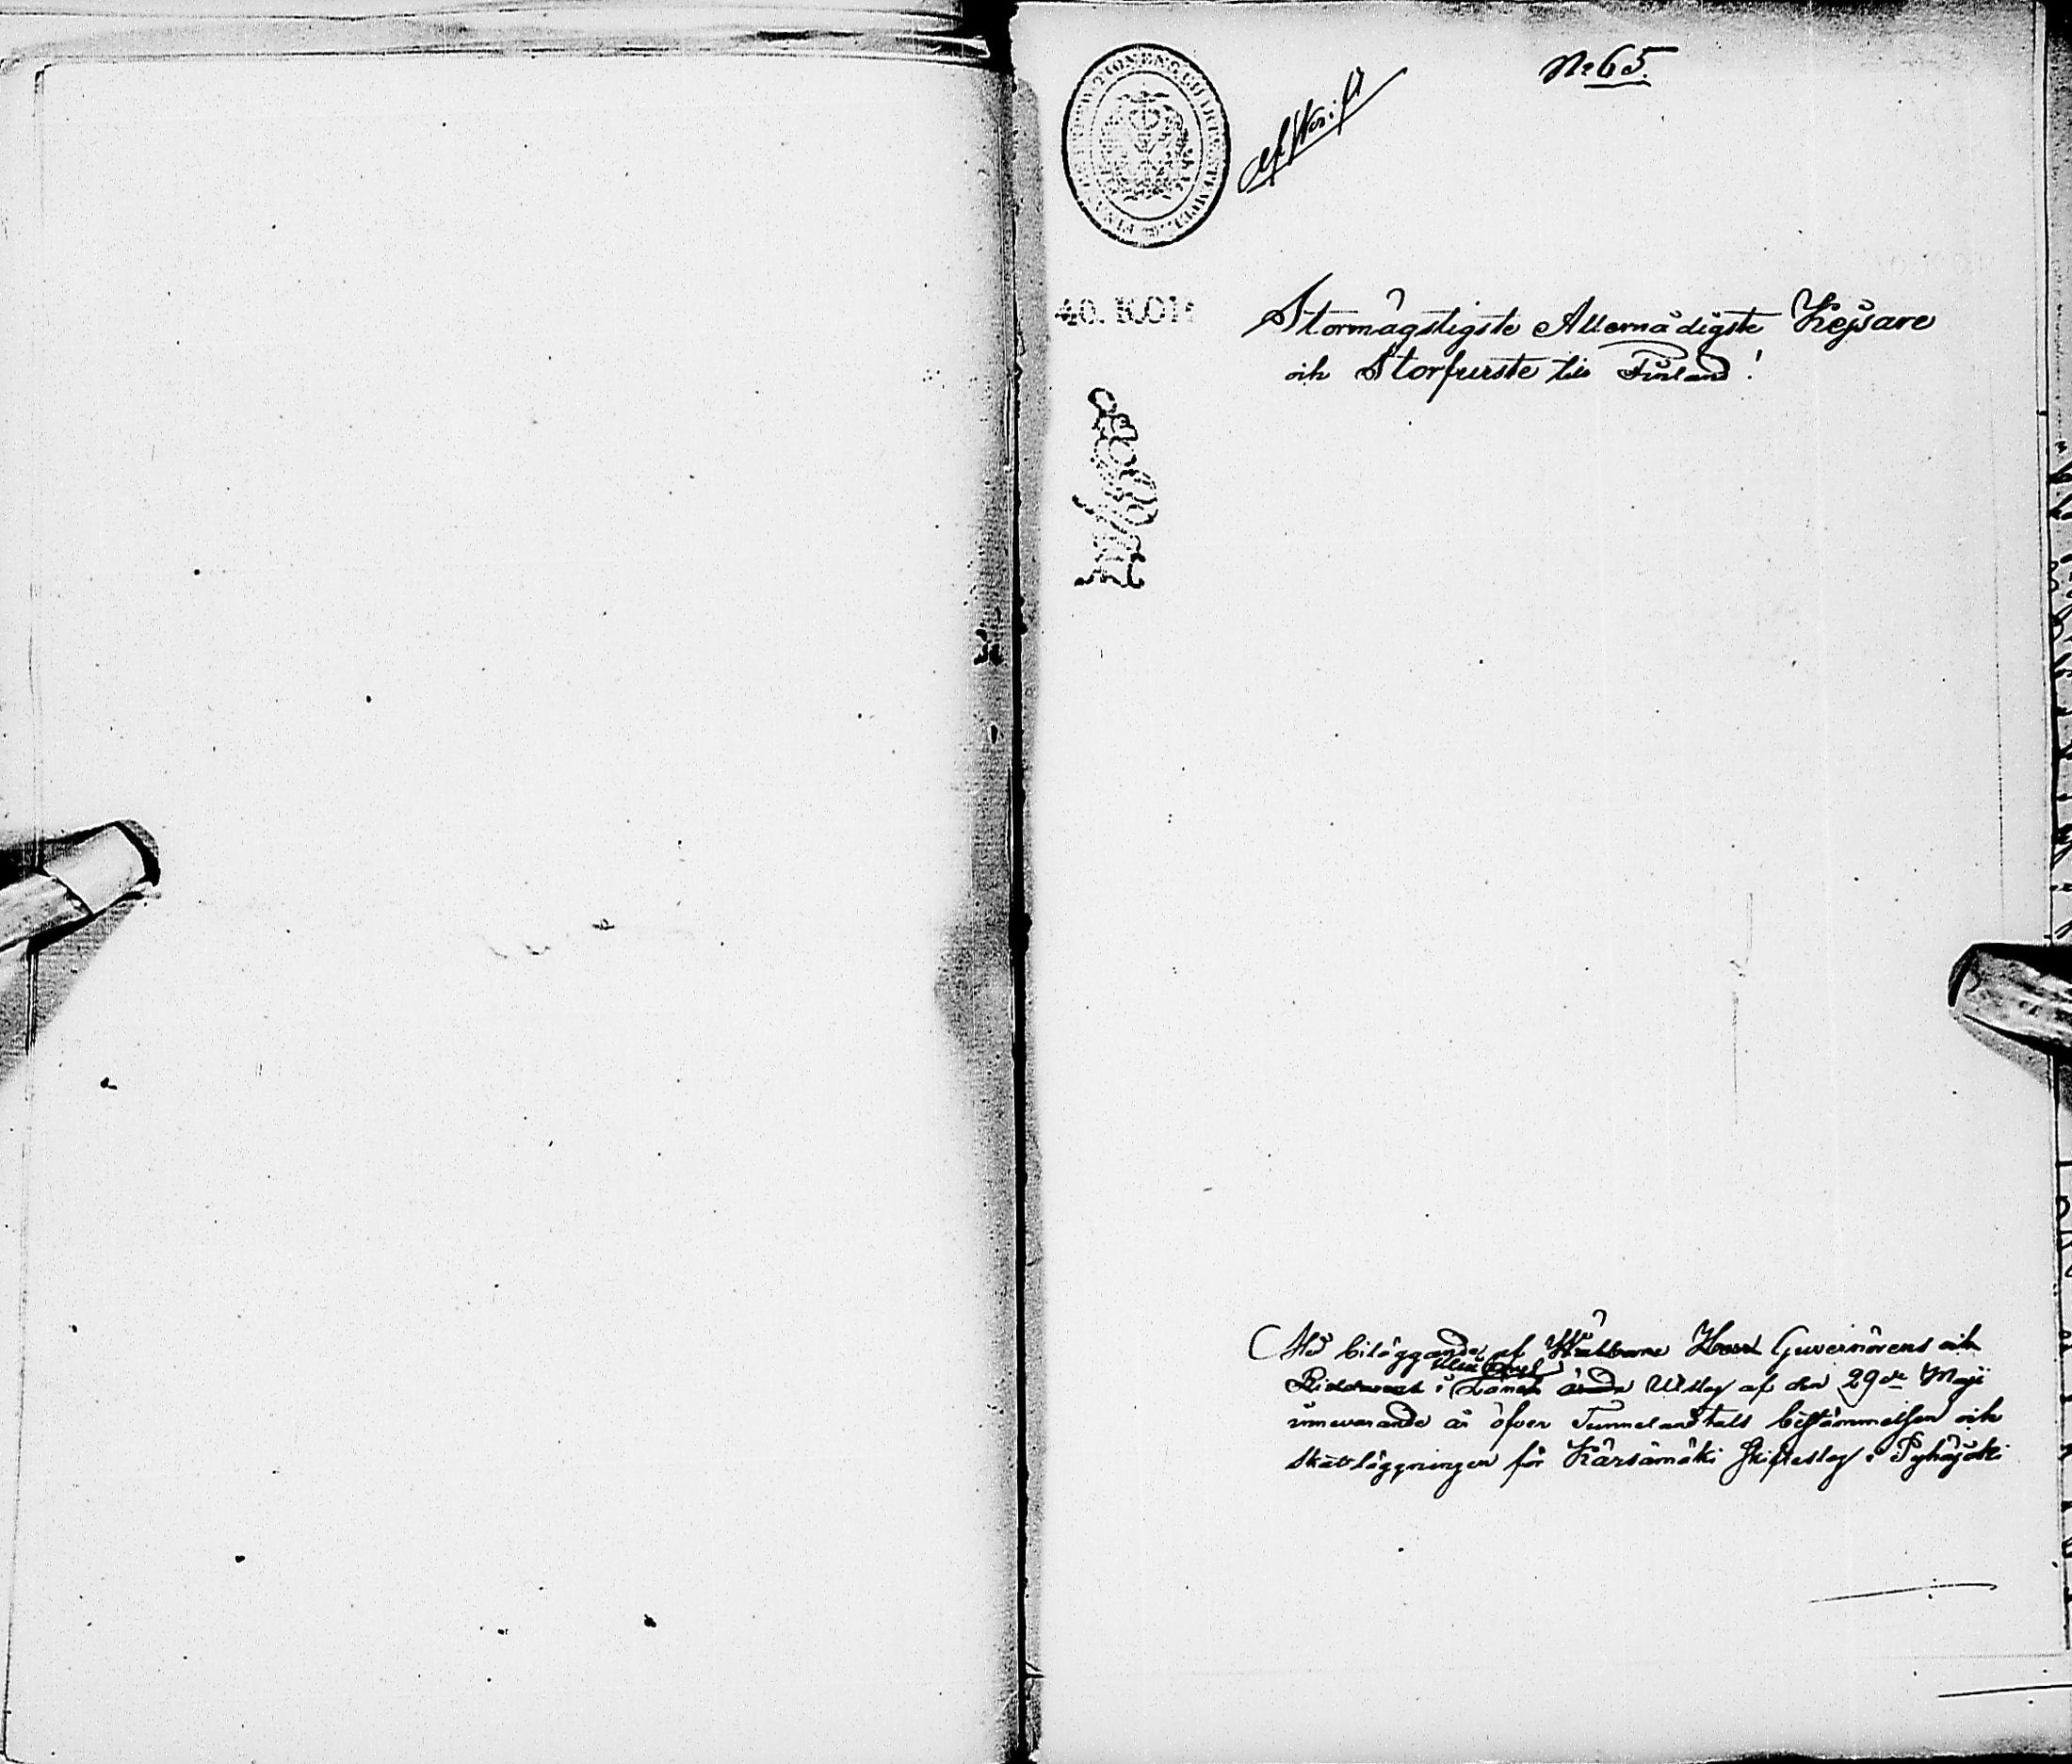 No 65.
Afskrift
40. KOP.
Stormägtigste Allernådigste Kejsare
och Storfurste till Finland!
Med biläggande af Wälborne Herr Guvernörens och
Uleåborgs
Riddarens i Länet Utslag af den 29de Maji
innevarande år öfver Tunnelandtals bestämmelsen och
skattläggningen för Kärsämäki Skifteslag i Pyhäjoki